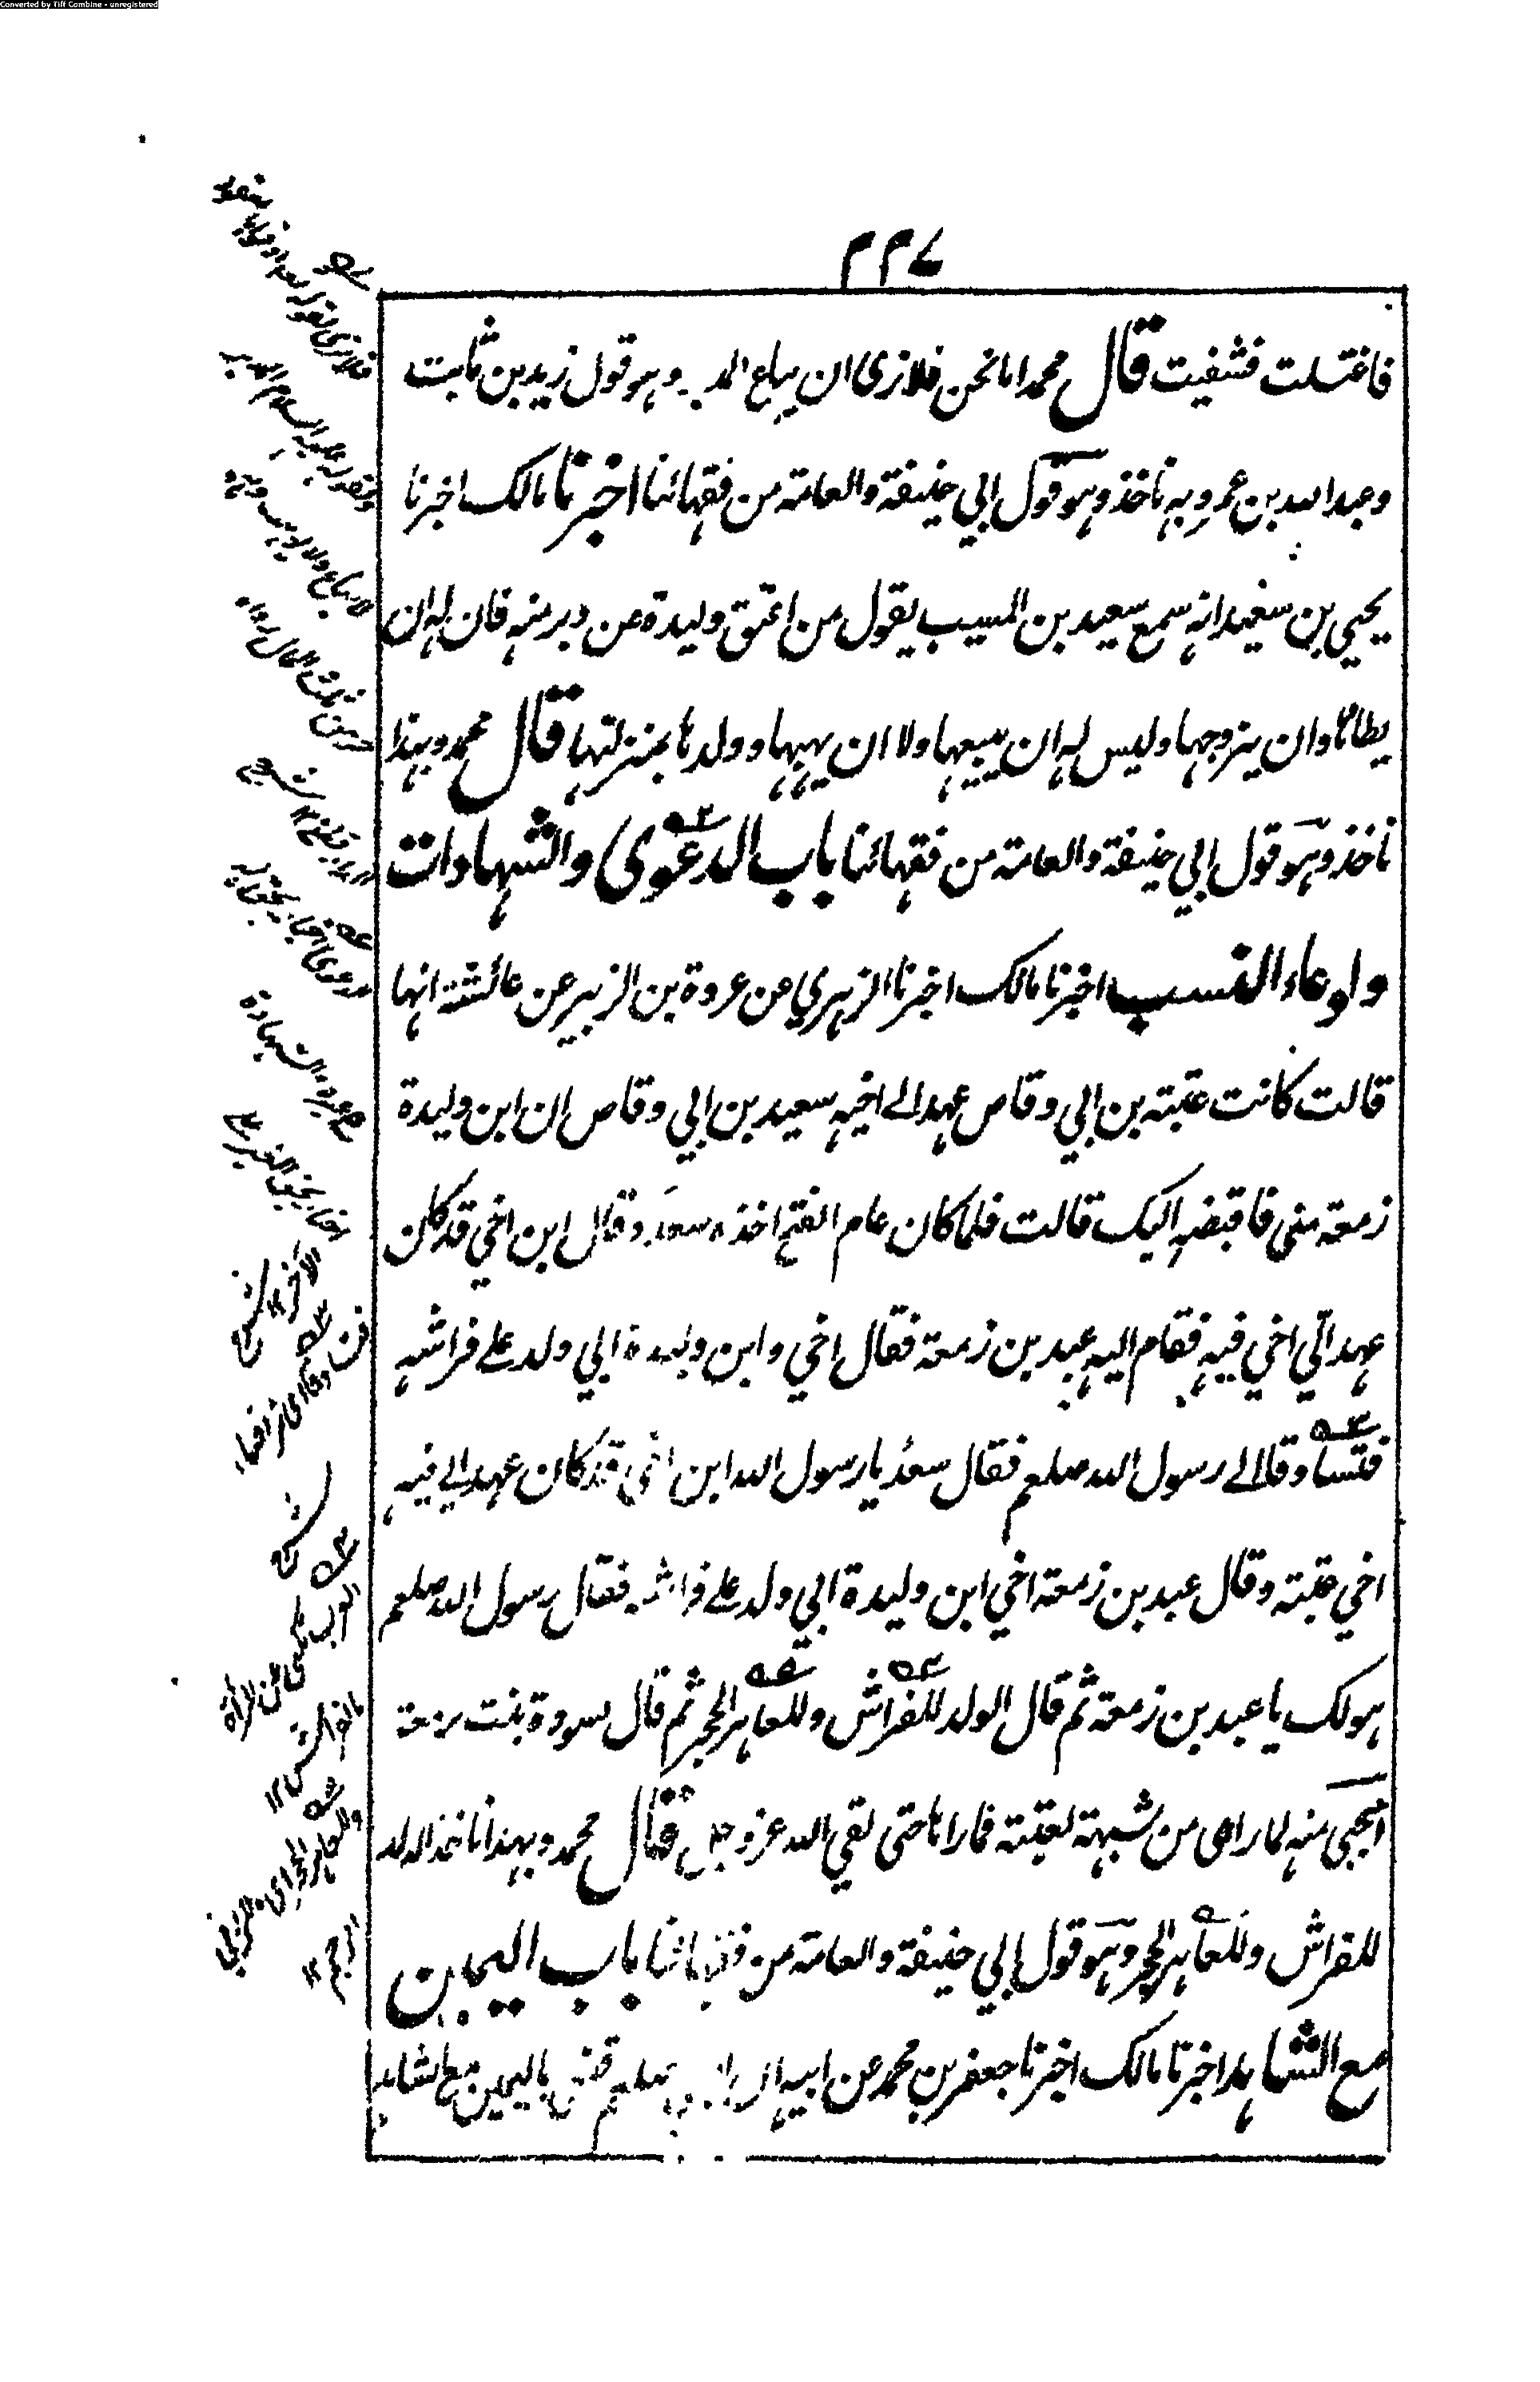 Converted by Tiff Combine - unregistered
۳۳۷
فاغتسلت فشفيت قال محمد اما نحن فلا نرى ان يباع المدبر وهو قول زيد بن ثابت
وعبد الله بن عمر وبه ناخذ وهو قول ابي حنيفة والعامة من فقهائنا اخبرنا مالك اخبرنا
يحيى بن سعيد انه سمع سعيد بن المسيب يقول من اعتق وليدة عن دبر منه فان له ان
يطاها وان يتزوجها وليس له ان يبيعها ولا ان يهبها وولدها بمنزلتها قال محمد وبهذا
ناخذ وهو قول ابي حنيفة والعامة من فقهائنا باب الدعوى والشهادات
وادعاء النسب اخبرنا مالك اخبرنا الزهري عن عروة بن الزبير عن عائشة انها
قالت كانت عتبة بن ابي وقاص عهد الى اخيه سعيد بن ابي وقاص ان ابن وليدة
زمعة مني فاقبضه اليك قالت فلما كان عام الفتح اخذه سعد وقال ابن اخي قد كان
عهد الي اخي فيه فقام اليه عبد بن زمعة فقال اخي وابن وليدة ابي ولد على فراشه
فتساوقا الى رسول الله صلعم فقال سعد يا رسول الله ابن اخي قد كان عهد الي فيه
اخي عتبة وقال عبد بن زمعة اخي ابن وليدة ابي ولد على فراشه فقال رسول الله صلعم
هو لك يا عبد بن زمعة ثم قال الولد للفراش وللعاهر الحجر ثم قال سودة بنت زمعة
احتجبي منه لما راى من شبهه لعتبة فما راها حتى لقي الله عز وجل قال محمد وبهذا ناخذ الولد
للفراش وللعاهر الحجر وهو قول ابي حنيفة والعامة من فقهائنا باب اليمين
مع الشاهد اخبرنا مالك اخبرنا جعفر بن محمد عن ابيه ان النبي صلعم قضى باليمين مع الشاهد